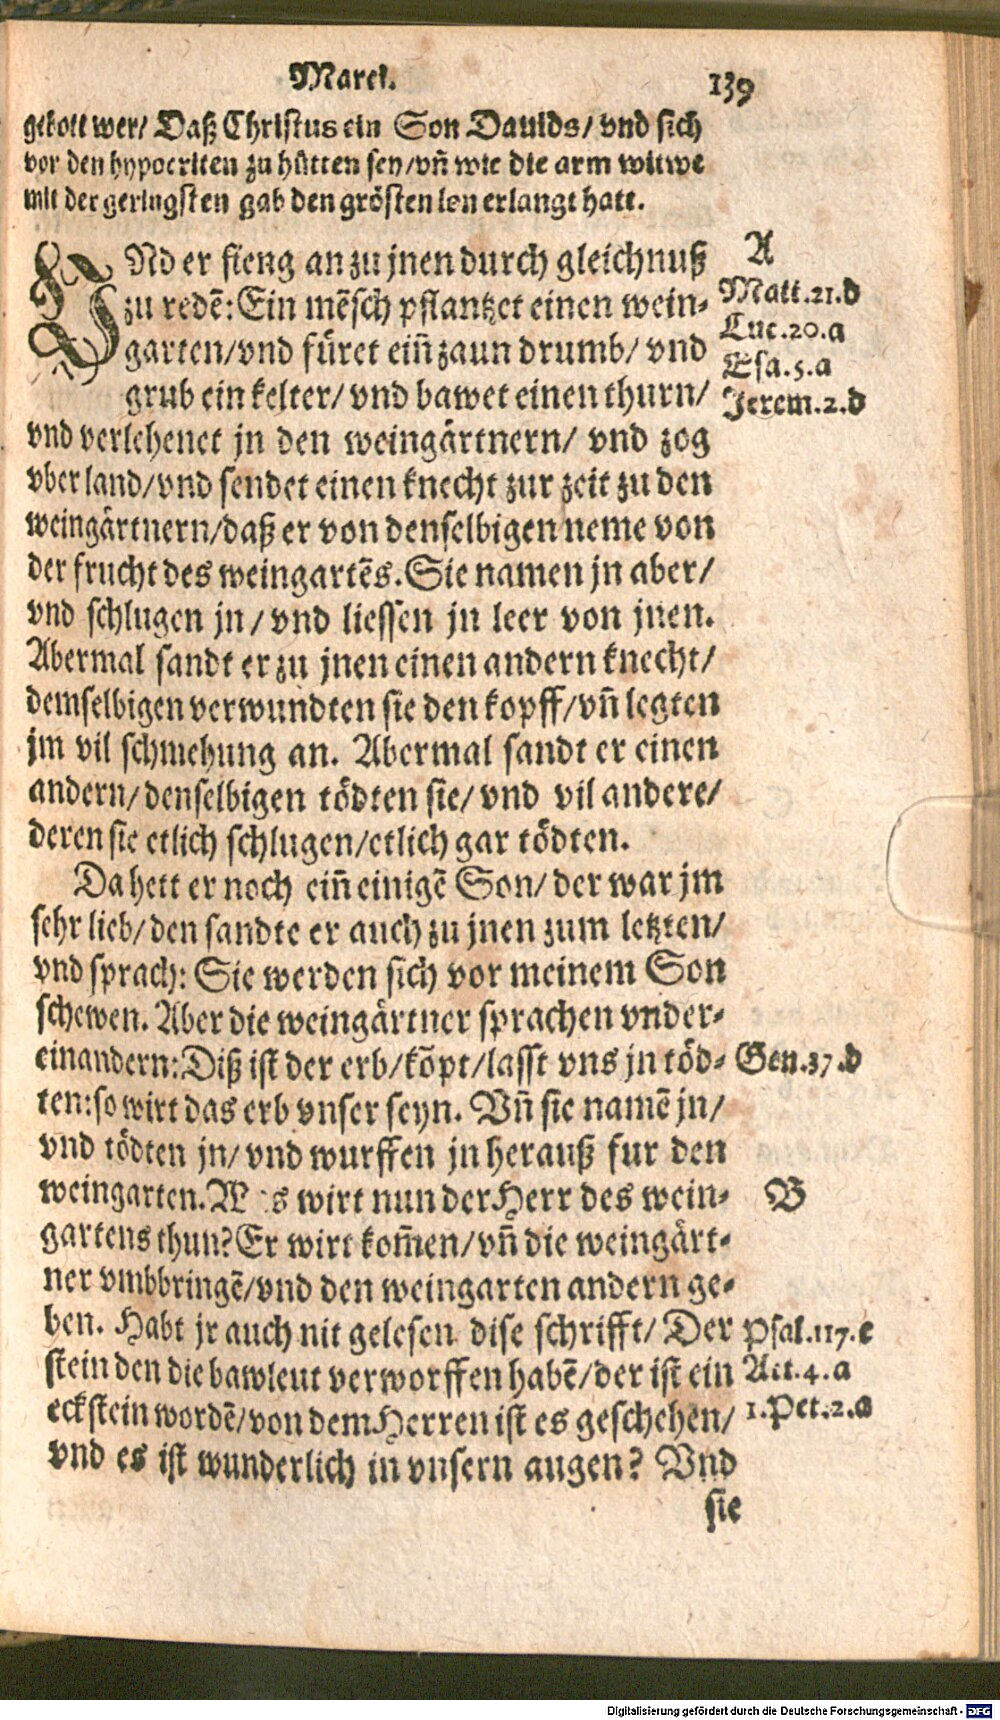 Marci.
139
gebott wer/ Daß Christus ein Son Dauids/ vnd sich
vor den hypocriten zu hütten sey/vñ wie die arm witwe
mit der geringsten gab den grösten lon erlangt hatt.
VNd er fieng an zu jnen durch gleichnuß
zu redē: Ein mēsch pflantzet einen wein-
garten/vnd füret eiñ zaun drumb/ vnd
grub ein kelter/ vnd bawet einen thurn/
vnd verlehenet jn den weingärtnern/ vnd zog
vber land/vnd sendet einen knecht zur zeit zu den
weingärtnern/daß er von denselbigen neme von
der frucht des weingartēs. Sie namen jn aber/
vnd schlugen jn/ vnd liessen jn leer von jnen.
Abermal sandt er zu jnen einen andern knecht/
demselbigen verwundten sie den kopff/vñ legten
jm vil schmehung an. Abermal sandt er einen
andern/denselbigen tödten sie/ vnd vil andere/
deren sie etlich schlugen/etlich gar tödten.
Da hett er noch eiñ einigē Son/ der war jm
sehr lieb/ den sandte er auch zu jnen zum letzten/
vnd sprach: Sie werden sich vor meinem Son
schewen. Aber die weingärtner sprachen vnder-
einandern: Diß ist der erb/kōpt/lasst vns jn töd-
ten: so wirt das erb vnser seyn. Vñ sie namē jn/
vnd tödten jn/ vnd wurffen jn herauß fur den
weingarten. W s wirt nun der Herr des wein-
gartens thun? Er wirt kom̄en/vñ die weingärt-
ner vmbbringē/vnd den weingarten andern ge-
ben. Habt jr auch nit gelesen dise schrifft/ Der
stein den die bawleut verworffen habē/der ist ein
eckstein wordē/von dem Herren ist es geschehen/
vnd es ist wunderlich in vnsern augen? Vnd
sie
A
Matt.21.d
Luc.20.a
Esa.5.a
Jerem.2.d
Gen.37.d
B
Psal.117.c
Act.4.a
1.Pet.2.a
Digitalisierung gefördert durch die Deutsche Forschungsgemeinschaft - DFG